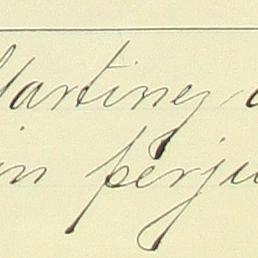 Martinez
in perju